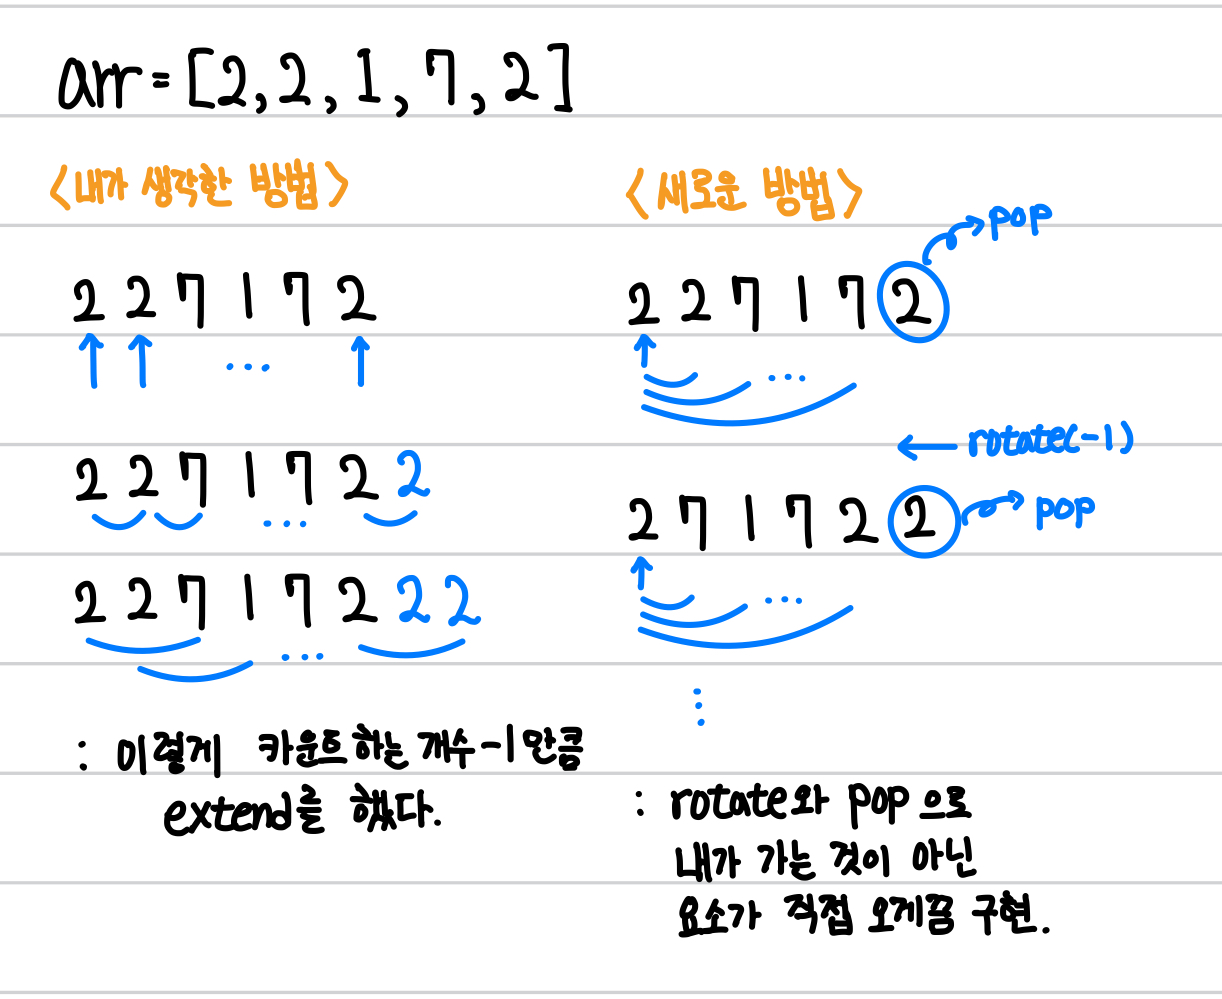 arr=[2,2,1,7,2]
<내가 생각한 방법>
2 2 7 1 7 2
...
2 2 7 1 7 2 2
...
2 2 7 1 7 2 2 2
...
: 이렇게 카운트하는 개수-1만큼
extend를 했다.
<새로운 방법>
pop
2 2 7 1 7 2
...
rotate(-1)
2 7 1 7 2 2
pop
...
⋮
: rotate와 pop으로
내가 가는 것이 아닌
요소가 직접 오게끔 구현.